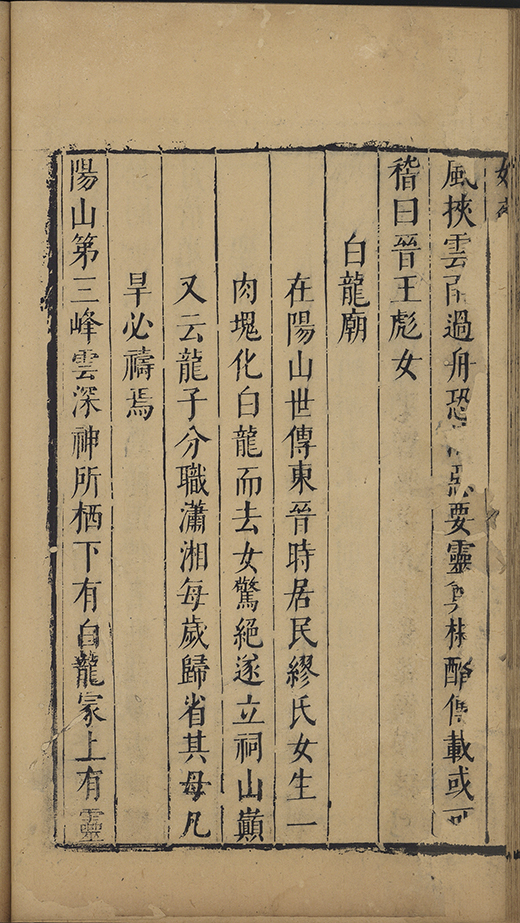 風挾雲過舟恐要靈酹傳載或可
稽曰晉王彪女
白龍廟
在陽山世傳東晉時居民繆氏女生一
肉塊化白龍而去女驚絕遂立祠山巔
又云龍子分職瀟湘每歲歸省其母凡
旱必禱焉
陽山第三峰雲深神所栖下有白龍冢上有靈